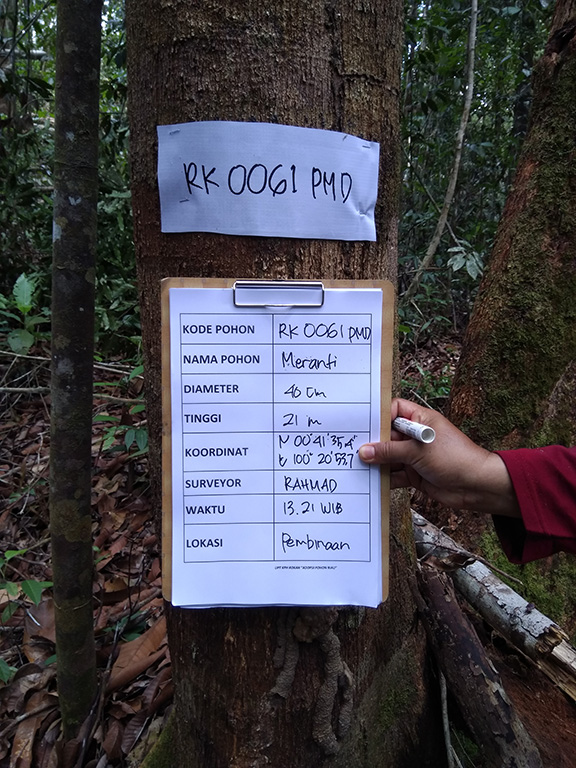 RK 0061 PMD
KODE POHON RK 0061 PMD
NAMA POHON Meranti
DIAMETER 40 cm
TINGGI 21 m
KOORDINAT N 00° 41' 35,4"
E 100° 20' 53,7"
SURVEYOR RAHMAD
WAKTU 13.21 WIB
LOKASI Pembinaan